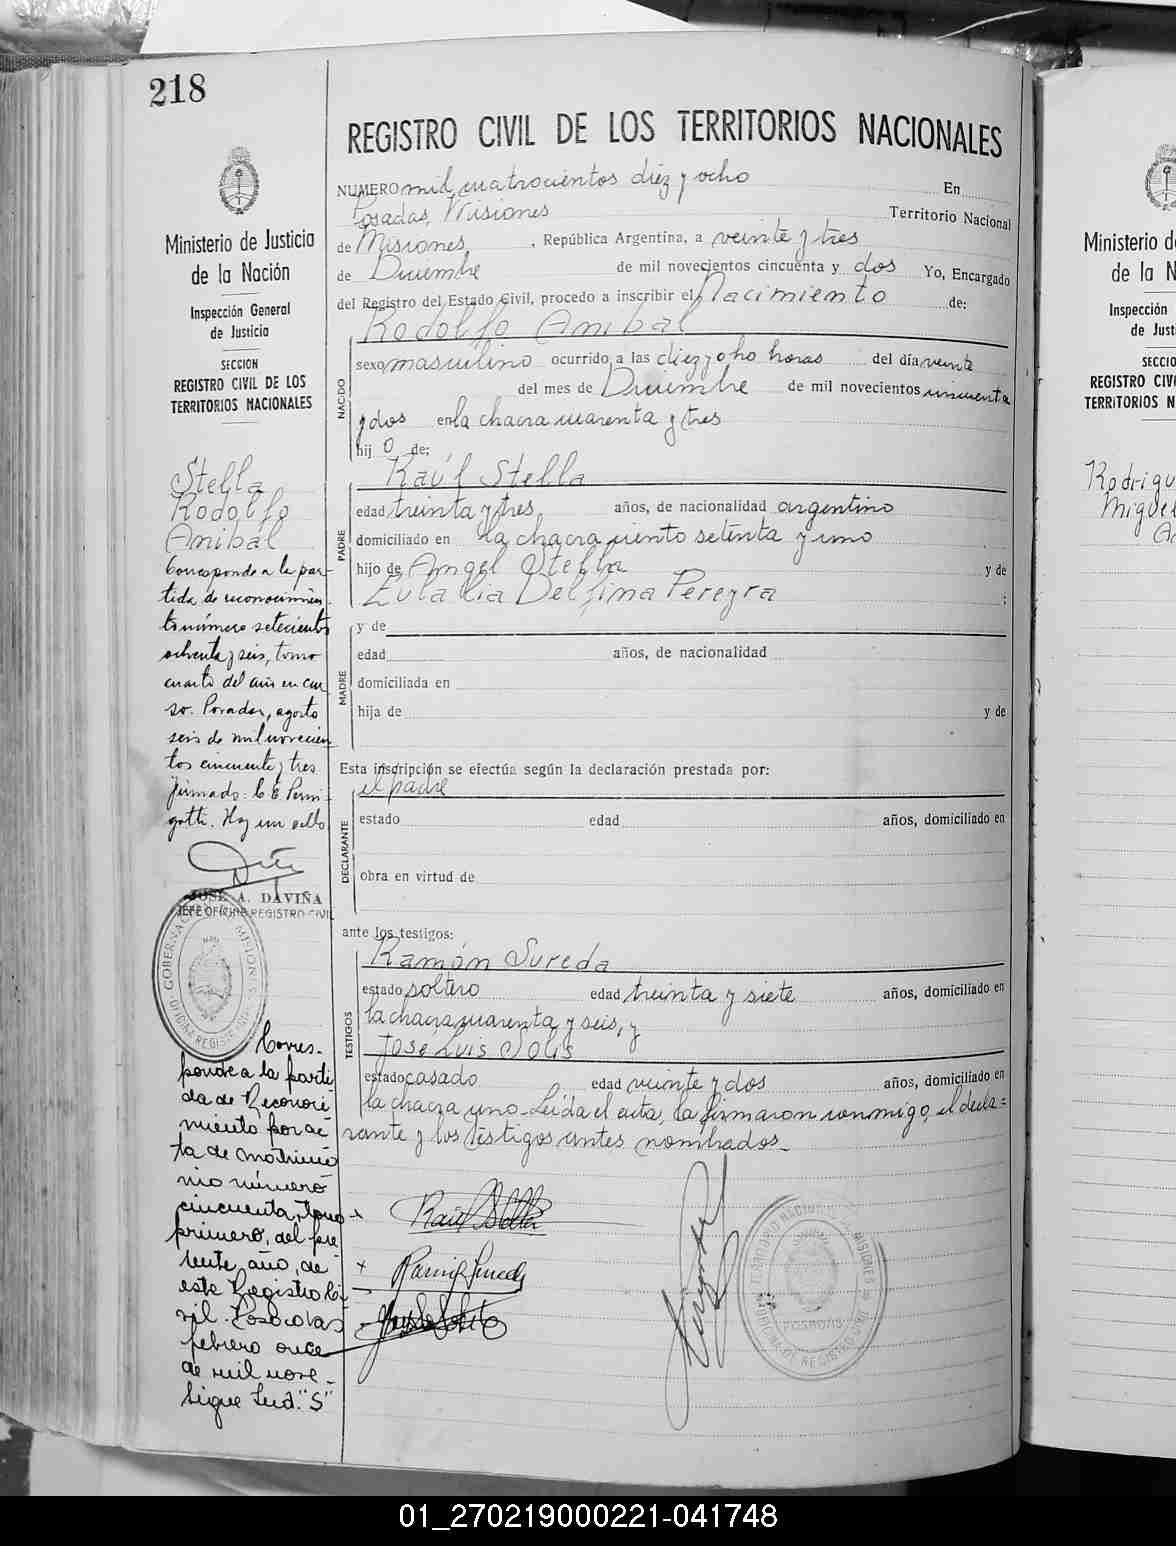 218
Ministerio de Justicia
de la Nación
Inspección General
de Justicia
SECCION
REGISTRO CIVIL DE LOS
TERRITORIOS NACIONALES
Stella
Rodolfo
Anibal
Corresponde a la par-
tida de reconocimien-
to número setecientos
ochenta y seis, tomo
cuarto del año en cur
so. Posadas, agosto
seis de mil novecien
tos cincuenta y tres
firmado: C. E. Permi-
gotti. Hay un sello
JOSE A. DAVIÑA
JEFE OFICINA REGISTRO CIVIL
GOBERNACION MISIONES
OFICINA REGISTRO
Corres-
ponde a la parti
da de Reconoci
miento por ac
ta de matrimo
nio número
cincuenta, tomo
primero, del pre
sente año, de
este Registro Ci-
vil. Posadas
febrero once
de mil nove-
Sigue Ind. "S"
REGISTRO CIVIL DE LOS TERRITORIOS NACIONALES
NUMERO mil cuatrocientos diez y ocho En
Posadas, Misiones Territorio Nacional
de Misiones, República Argentina, a veinte y tres
de Diciembre de mil novecientos cincuenta y dos Yo, Encargado
del Registro del Estado Civil, procedo a inscribir el Nacimiento de:
Rodolfo Anibal
NACIDO
sexo masculino ocurrido a las diez y ocho horas del día veinte
del mes de Diciembre de mil novecientos cincuenta
y dos en la chacra cuarenta y tres
hij o de:
Raúl Stella
PADRE
edad treinta y tres años, de nacionalidad argentino
domiciliado en la chacra ciento setenta y uno
hijo de Angel Stella y de
Eulalia Delfina Pereyra :
MADRE
y de
edad años, de nacionalidad
domiciliada en
hija de y de
Esta inscripción se efectúa según la declaración prestada por:
el padre
DECLARANTE
estado edad años, domiciliado en
obra en virtud de
ante los testigos:
Ramón Sureda
TESTIGOS
estado soltero edad treinta y siete años, domiciliado en
la chacra cuarenta y seis, y
José Luis Solis
estado casado edad veinte y dos años, domiciliado en
la chacra uno. Leida el acta, la firmaron conmigo, el decla=
rante y los testigos antes nombrados.
Raúl Stella
Ramón Sureda
TERRITORIO NACIONAL DE MISIONES
POSADAS
OFICINA DE REGISTRO CIVIL
Ministerio d
de la N
Inspección
de Just
SECCIO
REGISTRO CIV
TERRITORIOS N
Rodrigu
Miguel
01_270219000221-041748